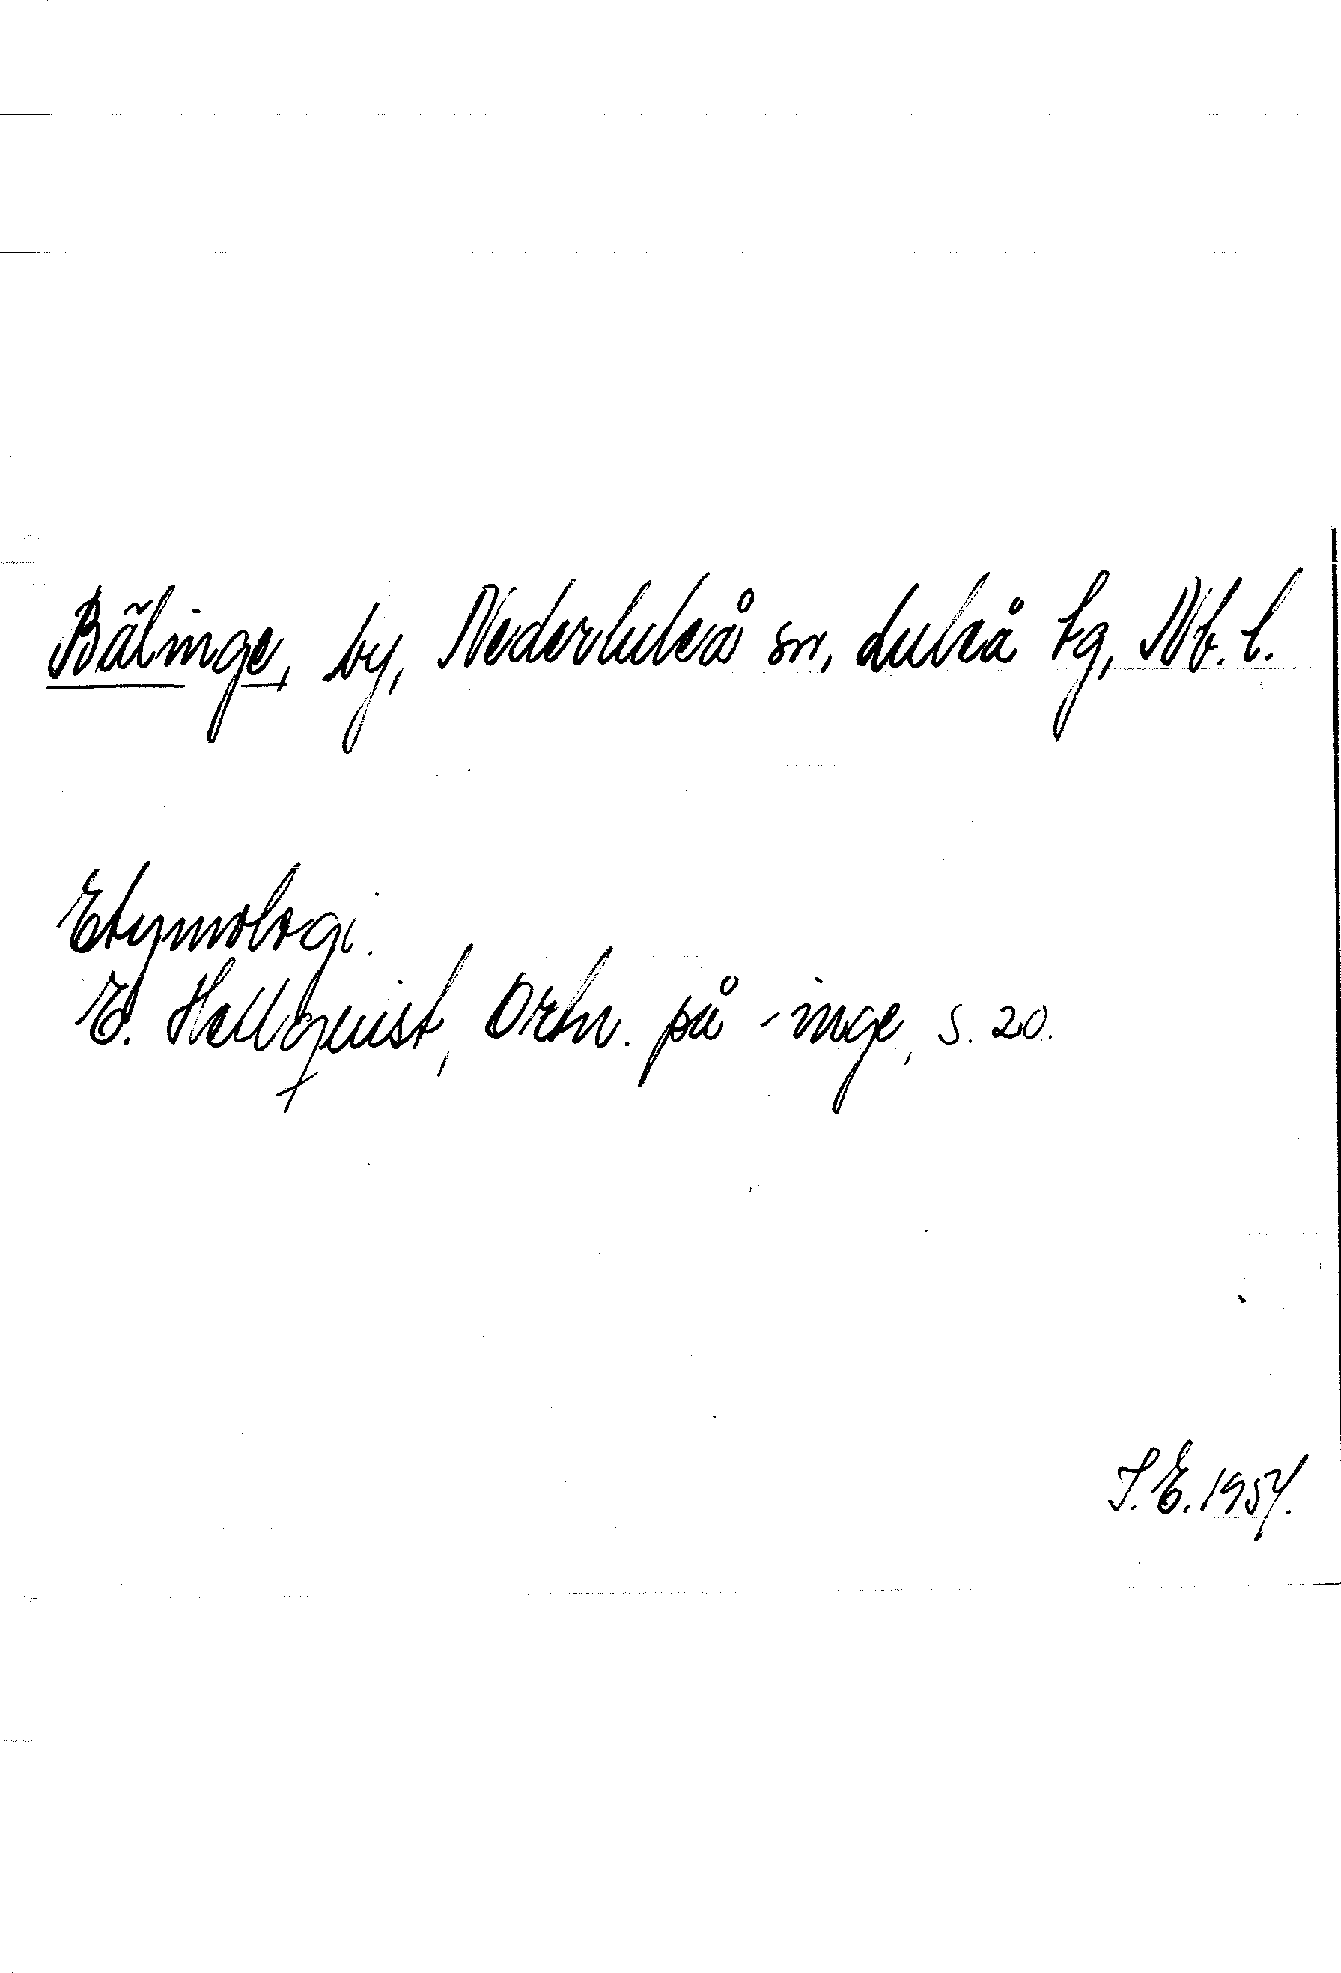 Bälinge, by, Nederluleå sn, Luleå tg, Nb. l.
Etymologi.
E. Hellquist, Ortn. på -inge, s. 20.
S. E. 1954.